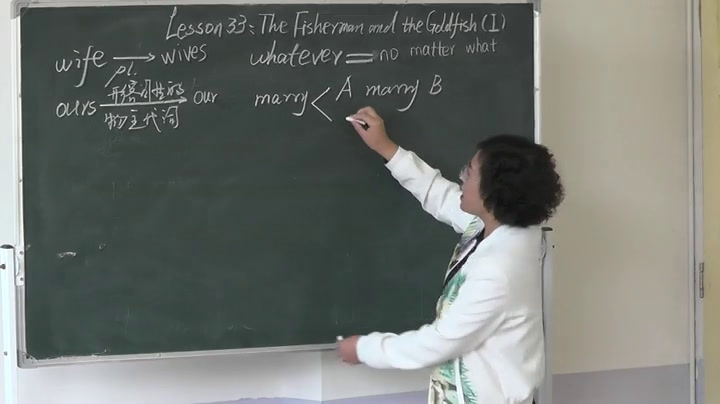 Lesson 33: The Fisherman and the Goldfish (I)
wife → wives
pl.
whatever = no matter what
ours → our
形容词性的
物主代词
marry < A marry B